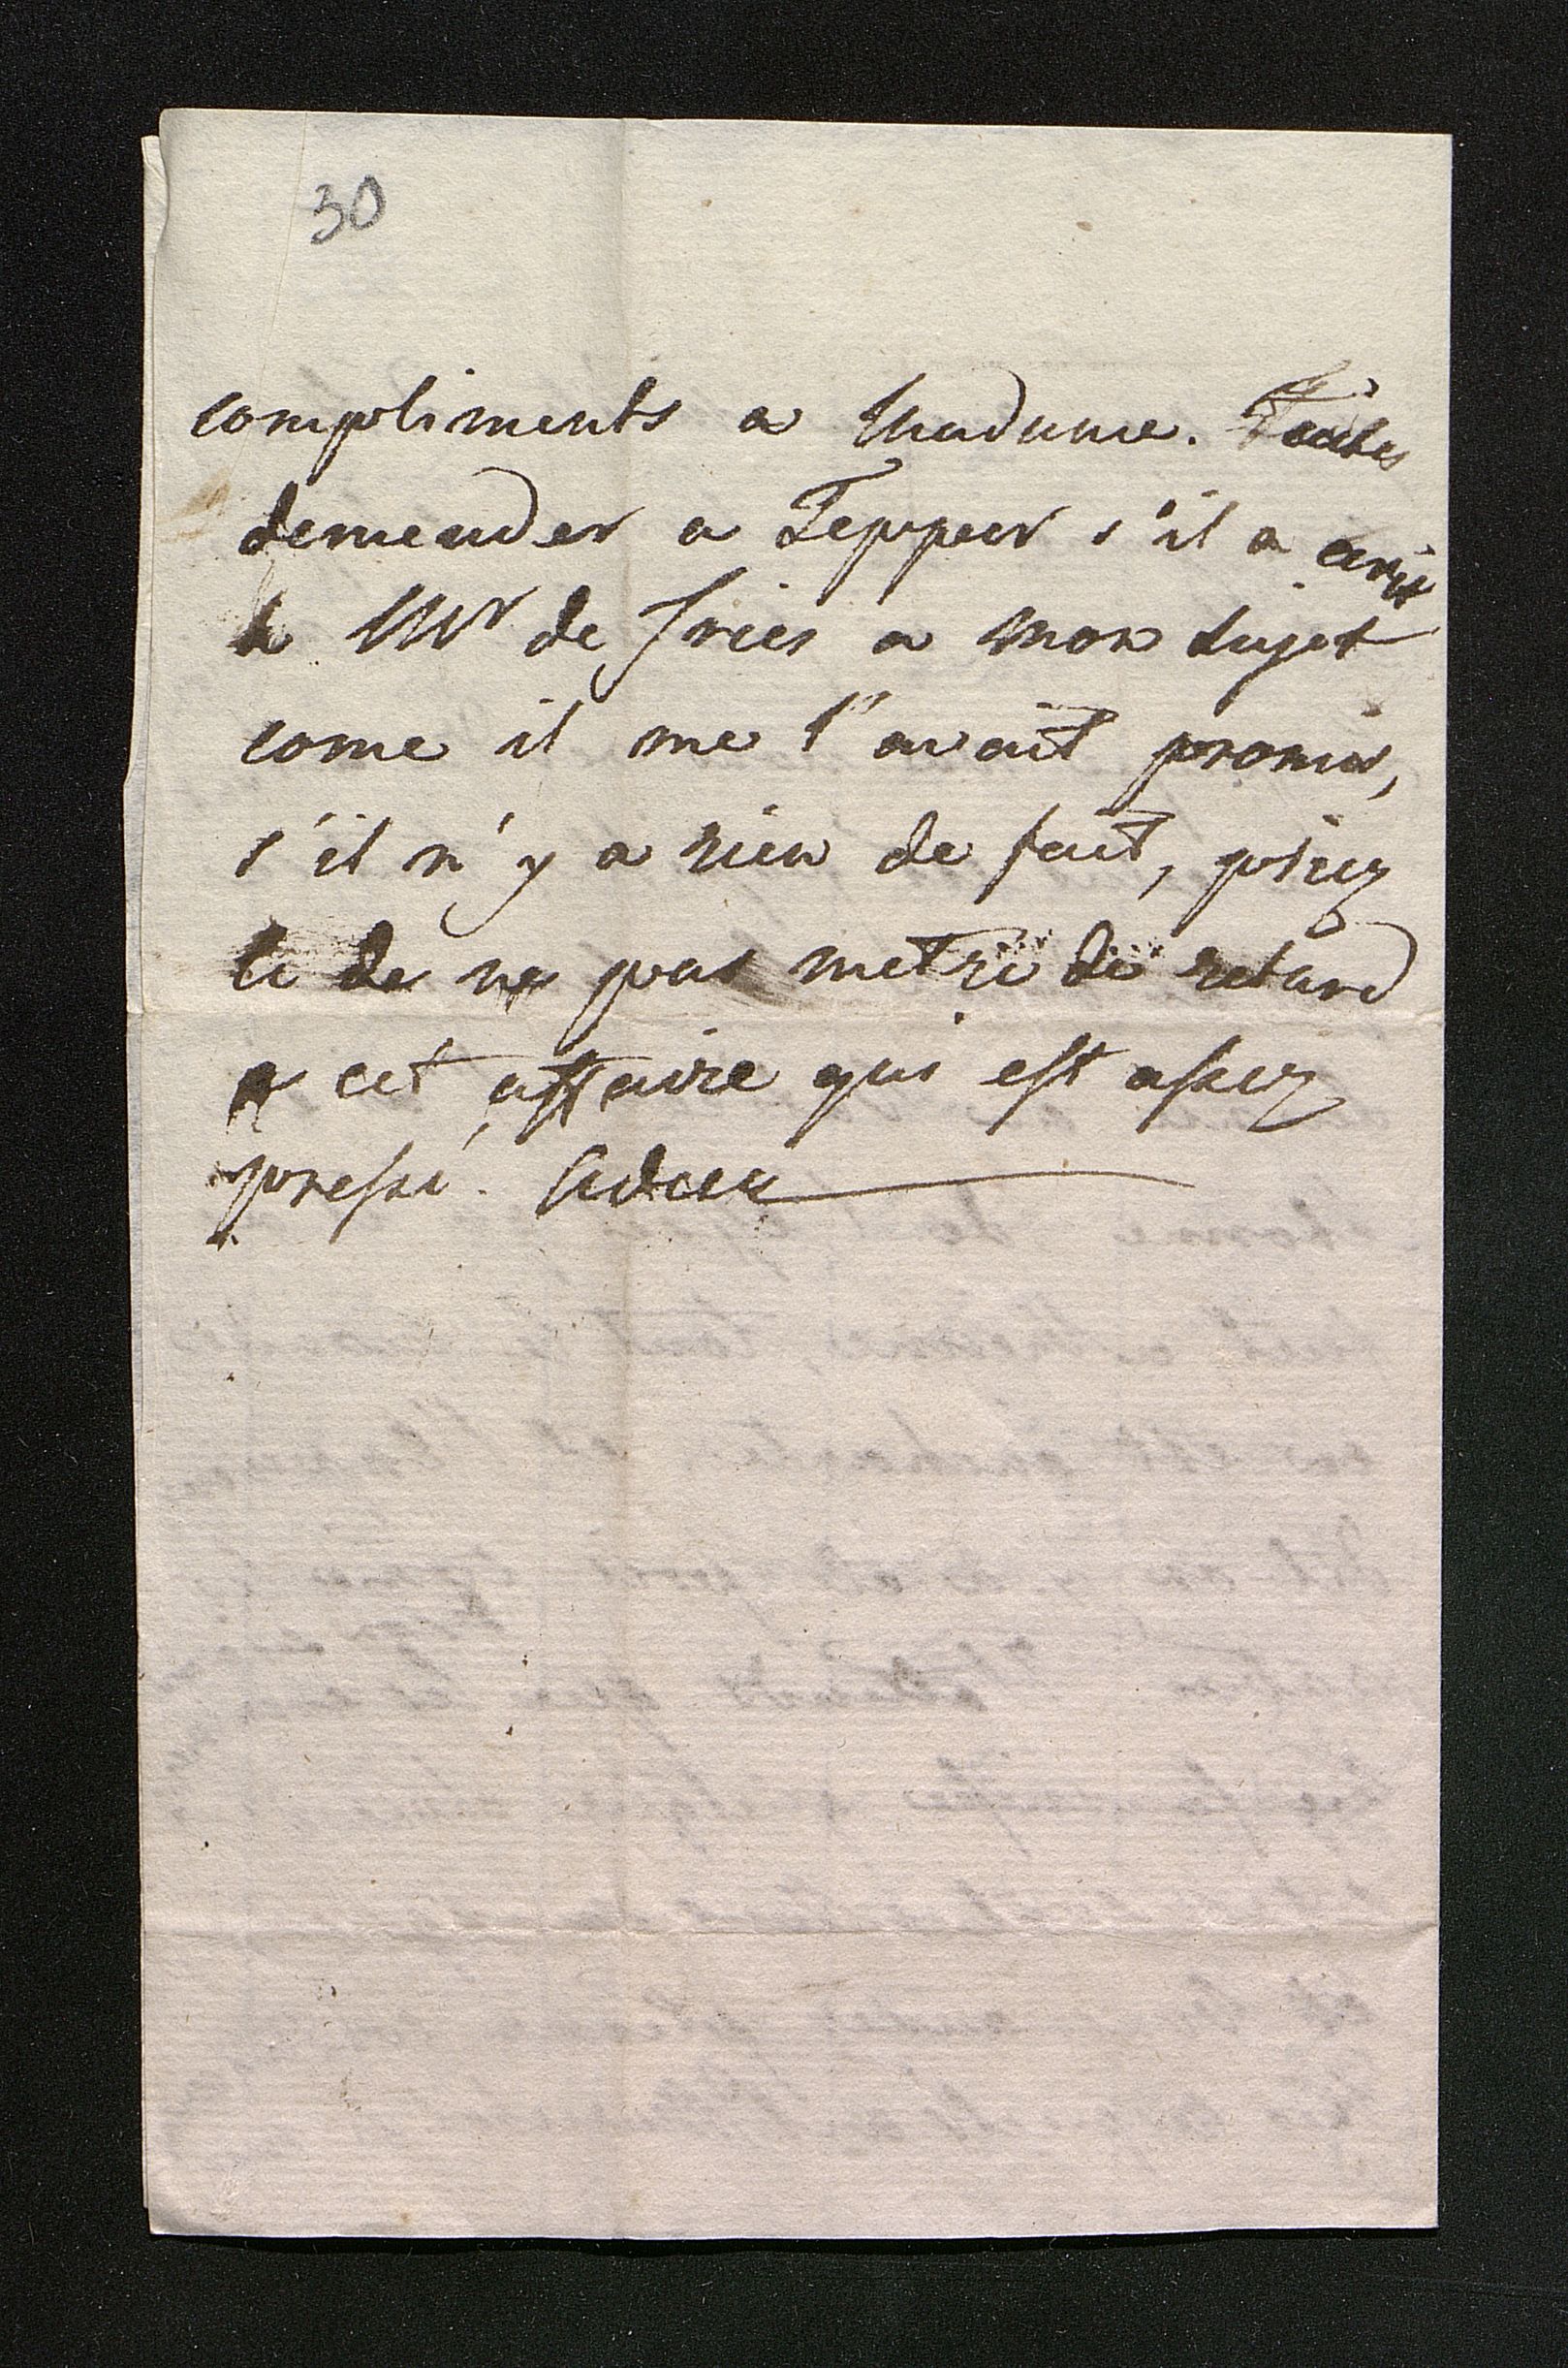 30
compliments a Madame. Faites
demender a Tepper s'il a ecrit
a Mr de fries a mon sujet
come il me l'avait promis,
s'il n'y a rien de fait, priez
le de ne pas metre de retard
a cet affaire qui est assez
pressé. Adieu